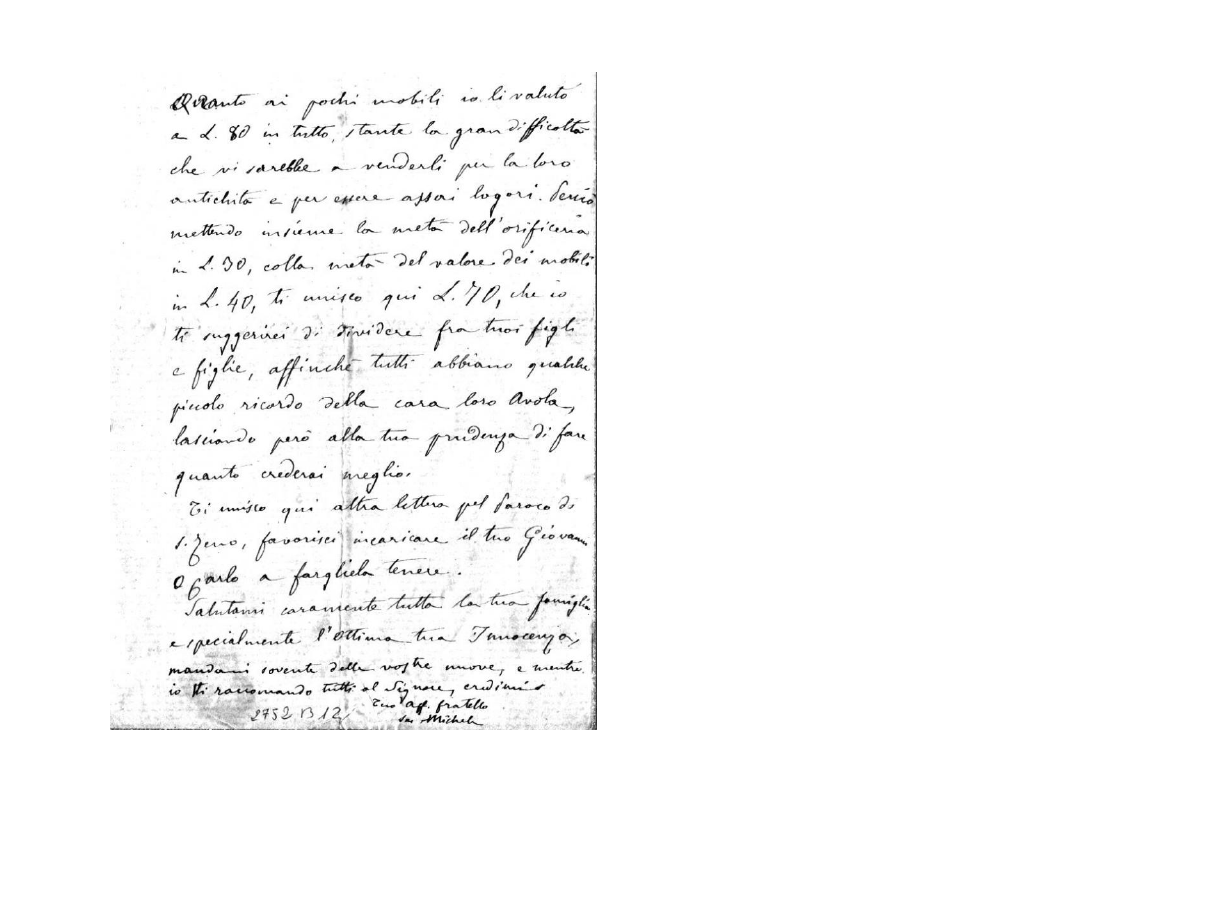 Quanto ai pochi mobili io li valuto
a L. 80 in tutto, stante la gran difficoltà
che vi sarebbe a venderli per la loro
antichità e per essere assai logori. Perciò
mettendo insieme la metà dell'orificeria
in L. 30, colla metà del valore dei mobili
in L. 40, ti unisco qui L. 70, che io
ti suggerirei di dividere fra tuoi figli
e figlie, affinché tutti abbiano qualche
piccolo ricordo della cara loro Avola,
lasciando però alla tua prudenza di fare
quanto crederai meglio.
Ti unisco qui altra lettera pel Paroco di
S. Zeno, favorisci incaricare il tuo Giovanni
o Carlo a fargliela tenere.
Salutami caramente tutta la tua famiglia
e specialmente l'Ottima tua Innocenza,
mandami sovente delle vostre nuove, e mentre
io vi raccomando tutti al Signore, credimi
Tuo aff. fratello
Sac Michele
2752 B 12